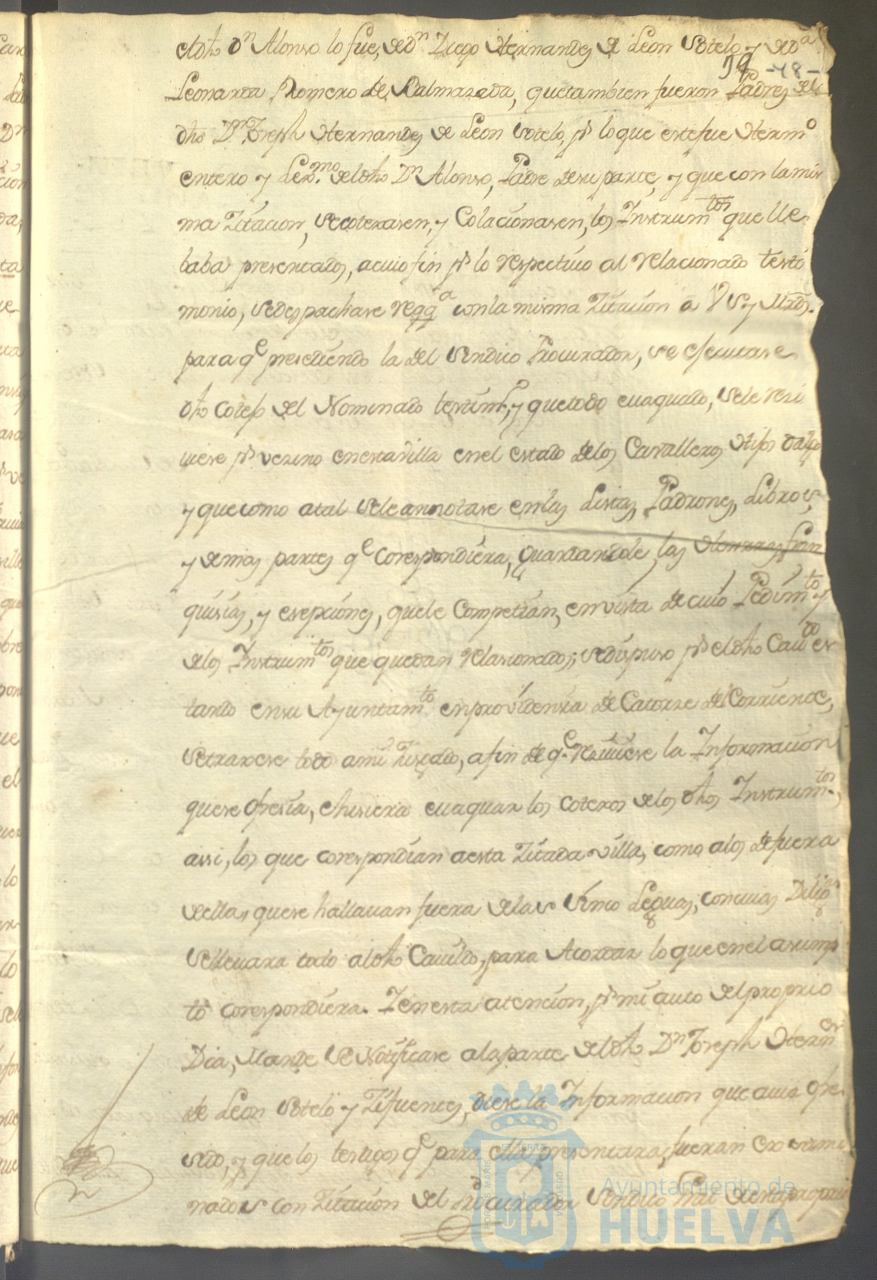 el dho Dn Alonso lo fue, de dn Diego Hernandes de Leon Sotelo y de Da
-48-
Leonarda Romero de Salmaseda, que tambien fueron Padres del
dho Dn Joseph Hernandes de Leon Sotelo, pr lo que este fue Hermo
entero y Lexmo del dho Dn Alonso, Padre de su parte, y que con la mis
ma Zitacion, se cotexasen, y Colacionasen, los Instrumtos que lle
baba presentados, a cuio fin pr lo respectivo al relacionado testi
monio, se despachase reqqa con la misma Zitacion a VS y Mrds.
para qe presediendo la del Sindico Procurador, se executase
dho cotejo del Nominado testimo, y que todo evaquado, se le resi
viese pr vezino en esta villa en el estado de los Cavalleros Hijos dalgo
y que como a tal se le annotase en las Listas, Padrones, Libros,
y demas partes qe corespondiera, Guardandole las Honrras fran
quisias, y esepciones, que le Competian, en vista de cuio Pedimto y
de los Instrumtos que quedan relasionados; se dispuso pr el dho Cavdo es
tando en su Ayuntamto en providensia de Catorse del Corriente,
se traxese todo a mi Jusgado, a fin de qe resiviese la Informacion
que se ofresia, e hisiera evaquar los cotexos de los dhos Instrumtos,
assi, los que corespondian a esta Zitada villa, como a los de fuera
de ella, que se hallavan fuera de las Sinco Leguas, con cuias Diligs
se llevara todo al dho Cavildo, para Acordar lo que en el asump
to corespondiera. Y en esta atencion, pr mi auto del proprio
Dia, Mande se Notificase a la parte del dho Dn Joseph Hernz
de Leon Sotelo y Zifuentes, diese la Informacion que avia ofre
sido, y que los testigos qe para ella presentara, fueran exsami
nados con Zitacion del Procurador Sindico
Ayuntamiento de
HUELVA